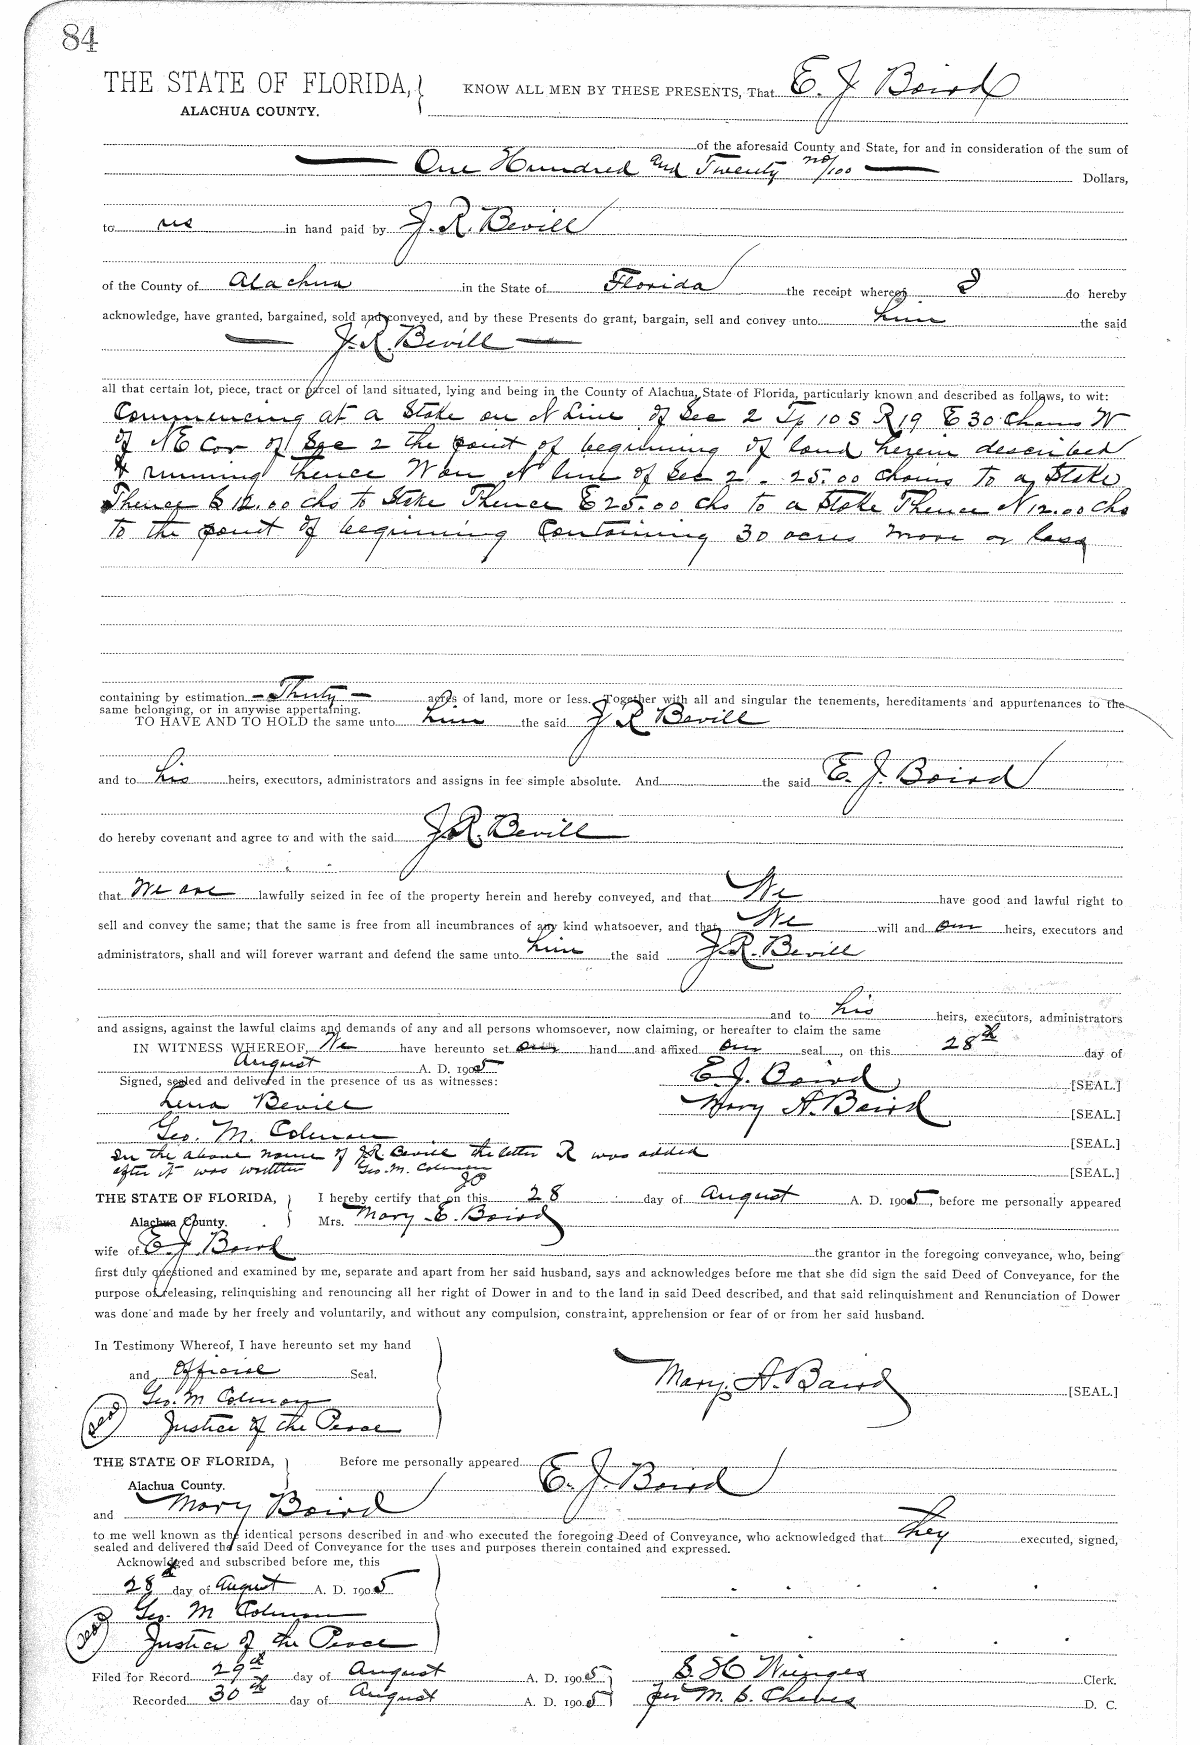 84
THE STATE OF FLORIDA,
ALACHUA COUNTY.
KNOW ALL MEN BY THESE PRESENTS, That E. J. Baird
of the aforesaid County and State, for and in consideration of the sum of
One Hundred and Twenty no/100 Dollars,
to us in hand paid by J. R. Bevill
of the County of Alachua in the State of Florida the receipt whereof I do hereby
acknowledge, have granted, bargained, sold and conveyed, and by these Presents do grant, bargain, sell and convey unto him the said
J. R. Bevill
all that certain lot, piece, tract or parcel of land situated, lying and being in the County of Alachua, State of Florida, particularly known and described as follows, to wit:
Commencing at a Stake on N Line of Sec 2 Tp 10 S R 19 E 30 Chains W
of N E Cor of Sec 2 the point of beginning of land herein described
& running thence W on N line of Sec 2. 25.00 chains to a Stake
Thence S 12.00 chs to Stake Thence E 25.00 chs to a Stake Thence N 12.00 chs
to the point of beginning Containing 30 acres more or less
containing by estimation Thirty acres of land, more or less. Together with all and singular the tenements, hereditaments and appurtenances to the
same belonging, or in anywise appertaining.
TO HAVE AND TO HOLD the same unto him the said J R Bevill
and to his heirs, executors, administrators and assigns in fee simple absolute. And the said E. J. Baird
do hereby covenant and agree to and with the said J. R. Bevill
that We are lawfully seized in fee of the property herein and hereby conveyed, and that We have good and lawful right to
sell and convey the same; that the same is free from all incumbrances of any kind whatsoever, and that We will and our heirs, executors and
administrators, shall and will forever warrant and defend the same unto him the said J. R. Bevill
and to his heirs, executors, administrators
and assigns, against the lawful claims and demands of any and all persons whomsoever, now claiming, or hereafter to claim the same
IN WITNESS WHEREOF, We have hereunto set our hand and affixed our seal, on this 28th day of
August A. D. 1905
Signed, sealed and delivered in the presence of us as witnesses: E. J. Baird [SEAL.]
Lena Bevill Mary A. Baird [SEAL.]
Geo. M. Coleman [SEAL.]
In the above name of J R Bevill the letter R was added
after it was written Geo. M. Coleman [SEAL.]
JP
THE STATE OF FLORIDA, I hereby certify that on this 28 day of August A. D. 1905, before me personally appeared
Alachua County. Mrs. Mary E. Baird
wife of E. J. Baird the grantor in the foregoing conveyance, who, being
first duly questioned and examined by me, separate and apart from her said husband, says and acknowledges before me that she did sign the said Deed of Conveyance, for the
purpose of releasing, relinquishing and renouncing all her right of Dower in and to the land in said Deed described, and that said relinquishment and Renunciation of Dower
was done and made by her freely and voluntarily, and without any compulsion, constraint, apprehension or fear of or from her said husband.
In Testimony Whereof, I have hereunto set my hand
and official Seal.
Geo. M Coleman Mary A. Baird [SEAL.]
Seal Justice of the Peace
THE STATE OF FLORIDA, Before me personally appeared E. J. Baird
Alachua County.
and Mary Baird
to me well known as the identical persons described in and who executed the foregoing Deed of Conveyance, who acknowledged that they executed, signed,
sealed and delivered the said Deed of Conveyance for the uses and purposes therein contained and expressed.
Acknowledged and subscribed before me, this
28th day of August A. D. 1905
Geo. M Coleman
Seal Justice of the Peace
Filed for Record 29th day of August A. D. 1905 S. H Wienges Clerk.
Recorded 30th day of August A. D. 1905 per M. S. Cheves D. C.